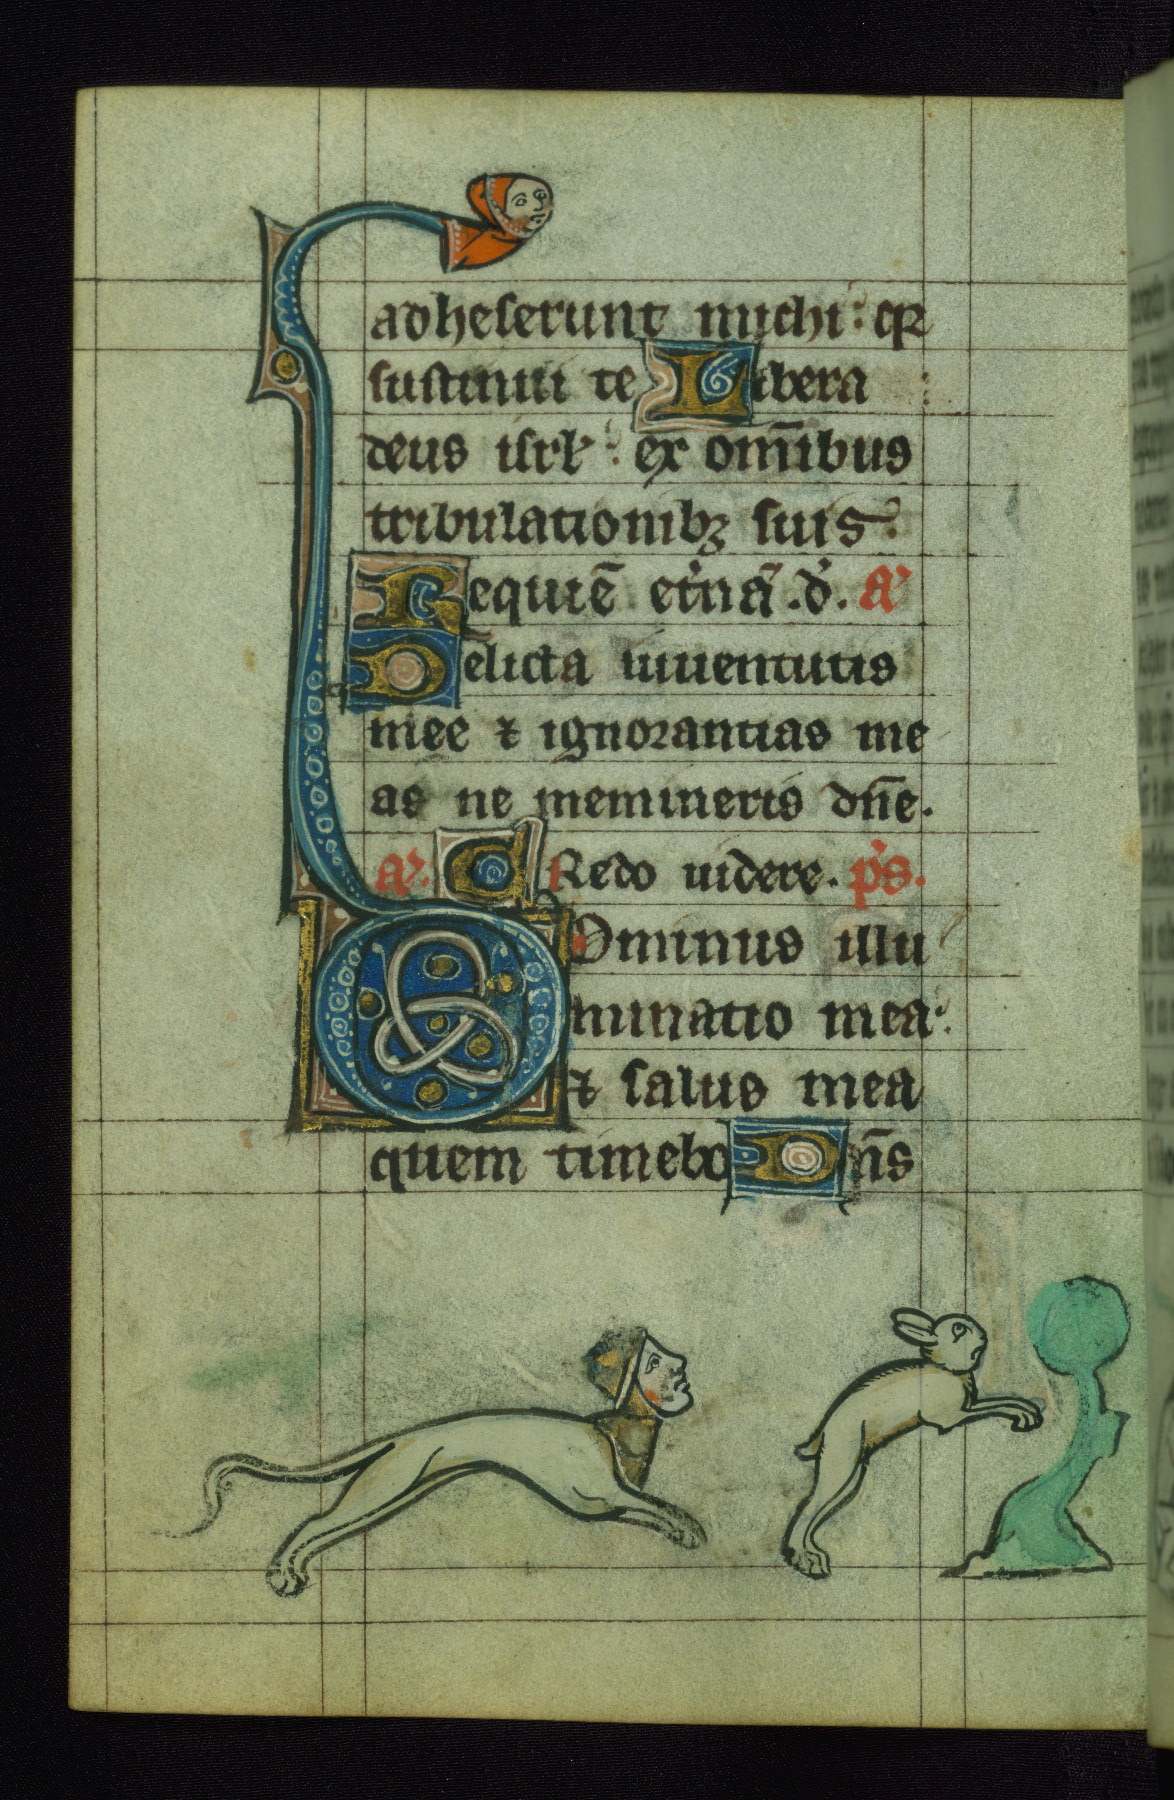 adheserunt michi: qr̄
sustinui te Libera
deus isrl̄: ex om̄ibus
tribulationibꝫ suis.
Requiē et̓nā .d̓. a̓
Delicta iuuentutis
mee ⁊ ignorantias me
as ne memineris dn̄e.
a̓. CRedo uidere. p̓s.
DOminus illu
minatio mea:
⁊ salus mea
quem timebo Dn̄s